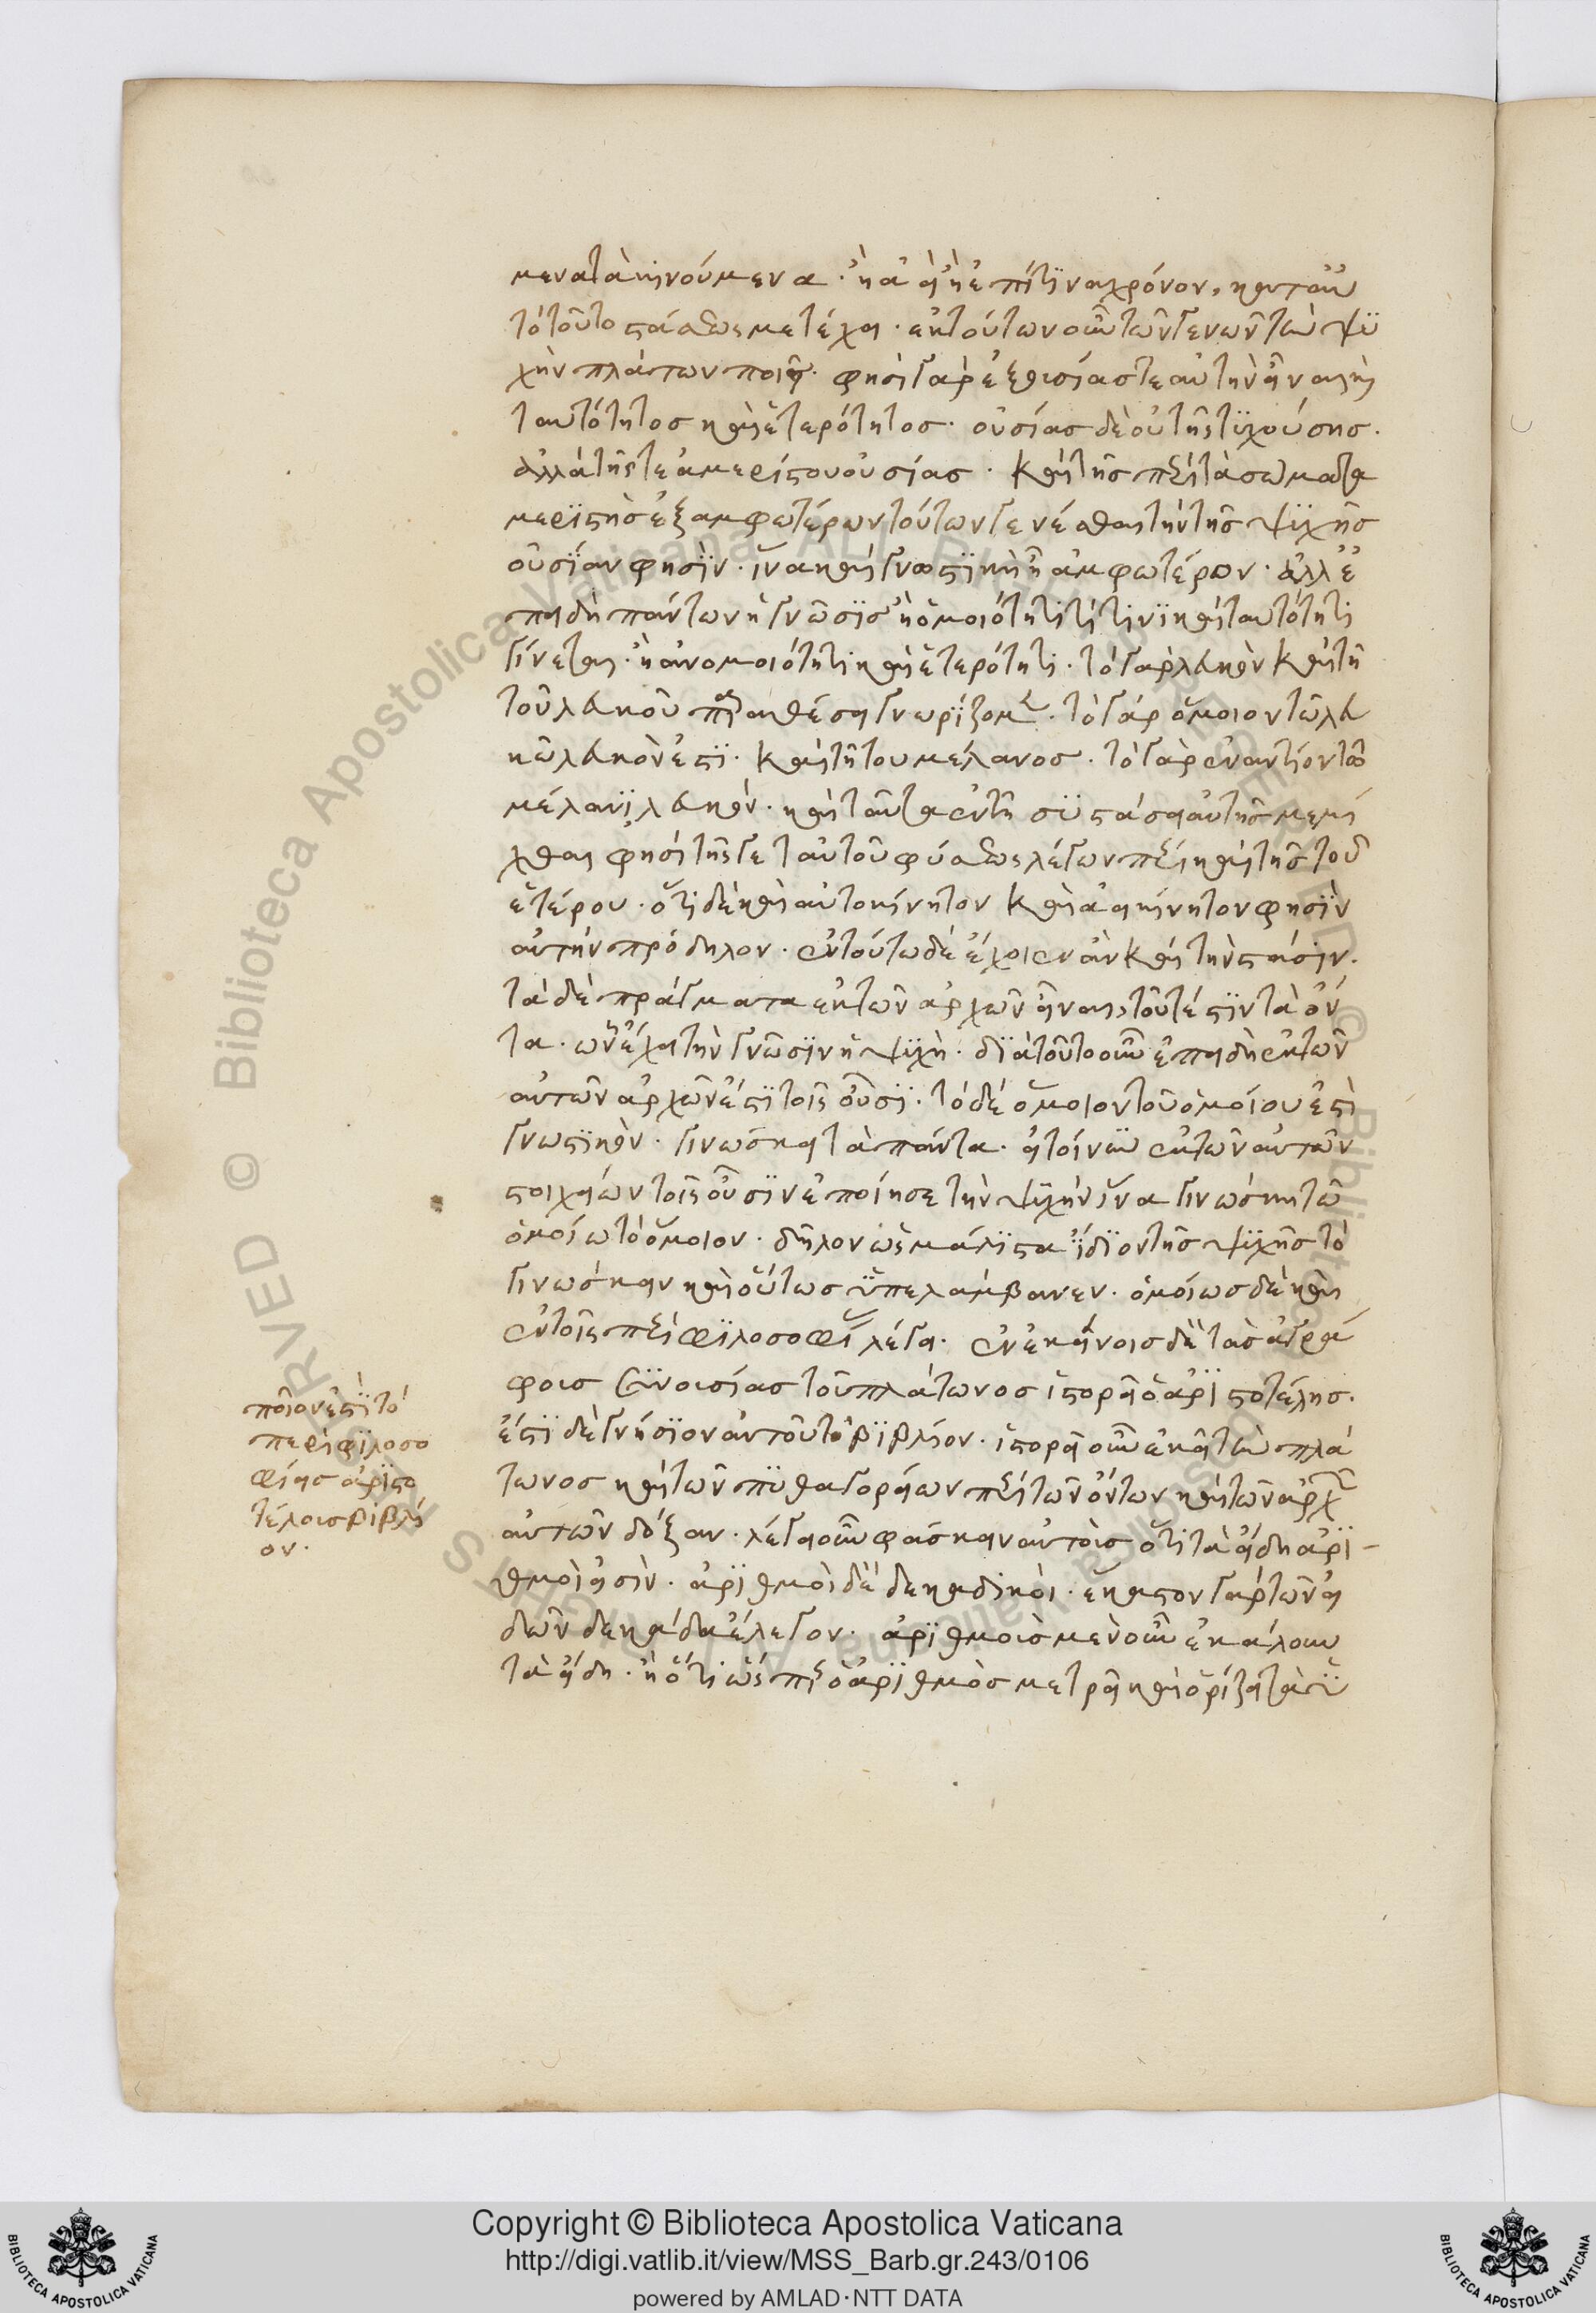 μενα τὰ κινούμενα· ἢ ἀεὶ ἢ ἐπί τινα χρόνον, κατ' αὐ
τὸ τοῦτο στάσεως μετέχει· ἐκ τούτων οὖν τῶν γενῶν τὴν ψυ
χὴν πλάτων ποιεῖ· φησὶ γὰρ ἐξ οὐσίας τε αὐτὴν εἶναι καὶ
ταυτότητος καὶ ἑτερότητος· οὐσίας δὲ οὐ τῆς τυχούσης·
ἀλλὰ τῆς τε ἀμερίστου οὐσίας· καὶ τῆς περὶ τὰ σώματα
μεριστῆς ἐξ ἀμφοτέρων τούτων γενέσθαι τὴν τῆς ψυχῆς
οὐσίαν φησὶν· ἵνα καὶ γνωστικὴ ᾖ ἀμφωτέρων· ἀλλ' ἐ
πειδὴ πάντων ἡ γνῶσις ἢ ὁμοιότητι τινὶ καὶ ταυτότητι
γίνεται· ἢ ἀνομοιότητι καὶ ἑτερότητι· τὸ γὰρ λευκὸν καὶ τῆ
τοῦ λευκοῦ παραθέσει γνωρίζομεν· τὸ γὰρ ὅμοιον τῶ λευ
κῶ λευκὸν ἐστι· καὶ τῆ του μέλανος· τὸ γὰρ ἐναντίον τῶ
μέλανι λευκόν· καὶ ταῦτα ἐν τῆ συστάσει αὐτῆς μεμί
χθαι φησὶ τῆς γε ταὐτοῦ φύσεως λέγων περὶ καὶ τῆς τοῦ
ἑτέρου· ὅτι δὲ καὶ αὐτοκίνητον καὶ ἀεικίνητον φησὶν
αὐτὴν πρόδηλον· ἐν τούτω δὲ ἔχοι ἐν ἂν καὶ τὴν στάσιν·
τὰ δὲ πράγματα ἐκ τῶν ἀρχῶν εἶναι, τοῦτέστιν τὰ ὄν
τα· ὧν ἔχει τὴν γνῶσιν ἡ ψυχὴ· διὰ τοῦτο οὖν ἐπειδὴ ἐκ τῶν
αὐτῶν ἀρχῶν ἐστὶ τοῖς οὖσι· τὸ δέ ὅμοιον τοῦ ὁμοίου ἐστὶ
γνωστικὸν· γινώσκει τὰ πάντα· εἰ τοίνυν ἐκ τῶν αὐτῶν
στοιχείων τοῖς οὖσιν ἐποίησε τὴν ψυχὴν ἵνα γινώσκη τῶ
ὁμοίω τὸ ὅμοιον· δῆλον ὡς μάλιστα ἴδιον τῆς ψυχῆς τὸ
γινώσκειν καὶ οὕτως ὑπελάμβανεν· ὁμοίως δὲ καὶ
ἐν τοῖς περὶ φιλοσοφίας λέγει· ἐν ἐκείνοις δὲ τὰς ἀγρά
φοις συνουσίας τοῦ πλάτωνος ἱστορεῖ ὁ ἀριστοτέλης·
ἔστι δὲ γνήσιον αὐτοῦ τὸ βιβλίον· ἱστορεῖ οὖν ἐκεῖ τὴν πλά
τωνος καὶ τῶν πυθαγορείων περὶ τῶν ὄντων καὶ τῶν ἀρχῶν
αὐτῶν δόξαν· λέγει οὖν φάσκειν αὐτοὶς ὅτι τὰ εἴδη ἀρι-
θμοὶ εἰσὶν· ἀριθμοὶ δὲ δεκαδικοὶ· ἕκαστον γὰρ τῶν εἰ
δῶν δεκάδα ἔλεγον· ἀριθμοὶς μὲν οὖν ἐκάλουν
τὰ εἴδη· ἢ ὅτι ὥσπερ ὁ ἀριθμὸς μετρεῖ καὶ ὁρίζει ταῦ
ποῖον ἐστὶ τὸ
περὶ φιλοσο
φίας ἀριστο
τέλοις βιβλί
ον·
Copyright © Biblioteca Apostolica Vaticana
http://digi.vatlib.it/view/MSS_Barb.gr.243/0106
powered by AMLAD·NTT DATA